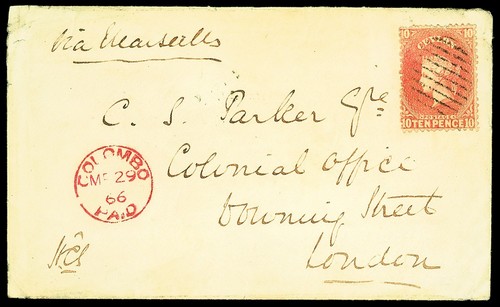 via Marseilles
10 CEYLON 10
C. S. Parker Esqre
10 TEN PENCE 10
POSTAGE
COLOMBO
Colonial Office
MR 29
66
PAID
Downing Street
London